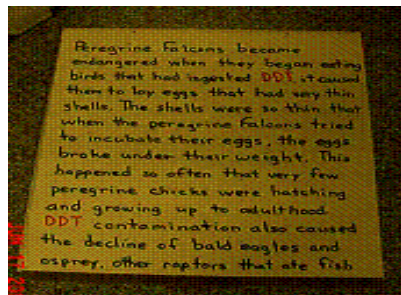 Peregrine Falcons became
endangered when they began eating
birds that had ingested DDT it caused
them to lay eggs that had very thin
shells. The shells were so thin that
when the peregrine falcons tried
to incubate their eggs, the eggs
broke under their weight. This
happened so often that very few
peregrine chicks were hatching
and growing up to adulthood
DDT contamination also caused
the decline of bald eagles and
osprey, other raptors that ate fish